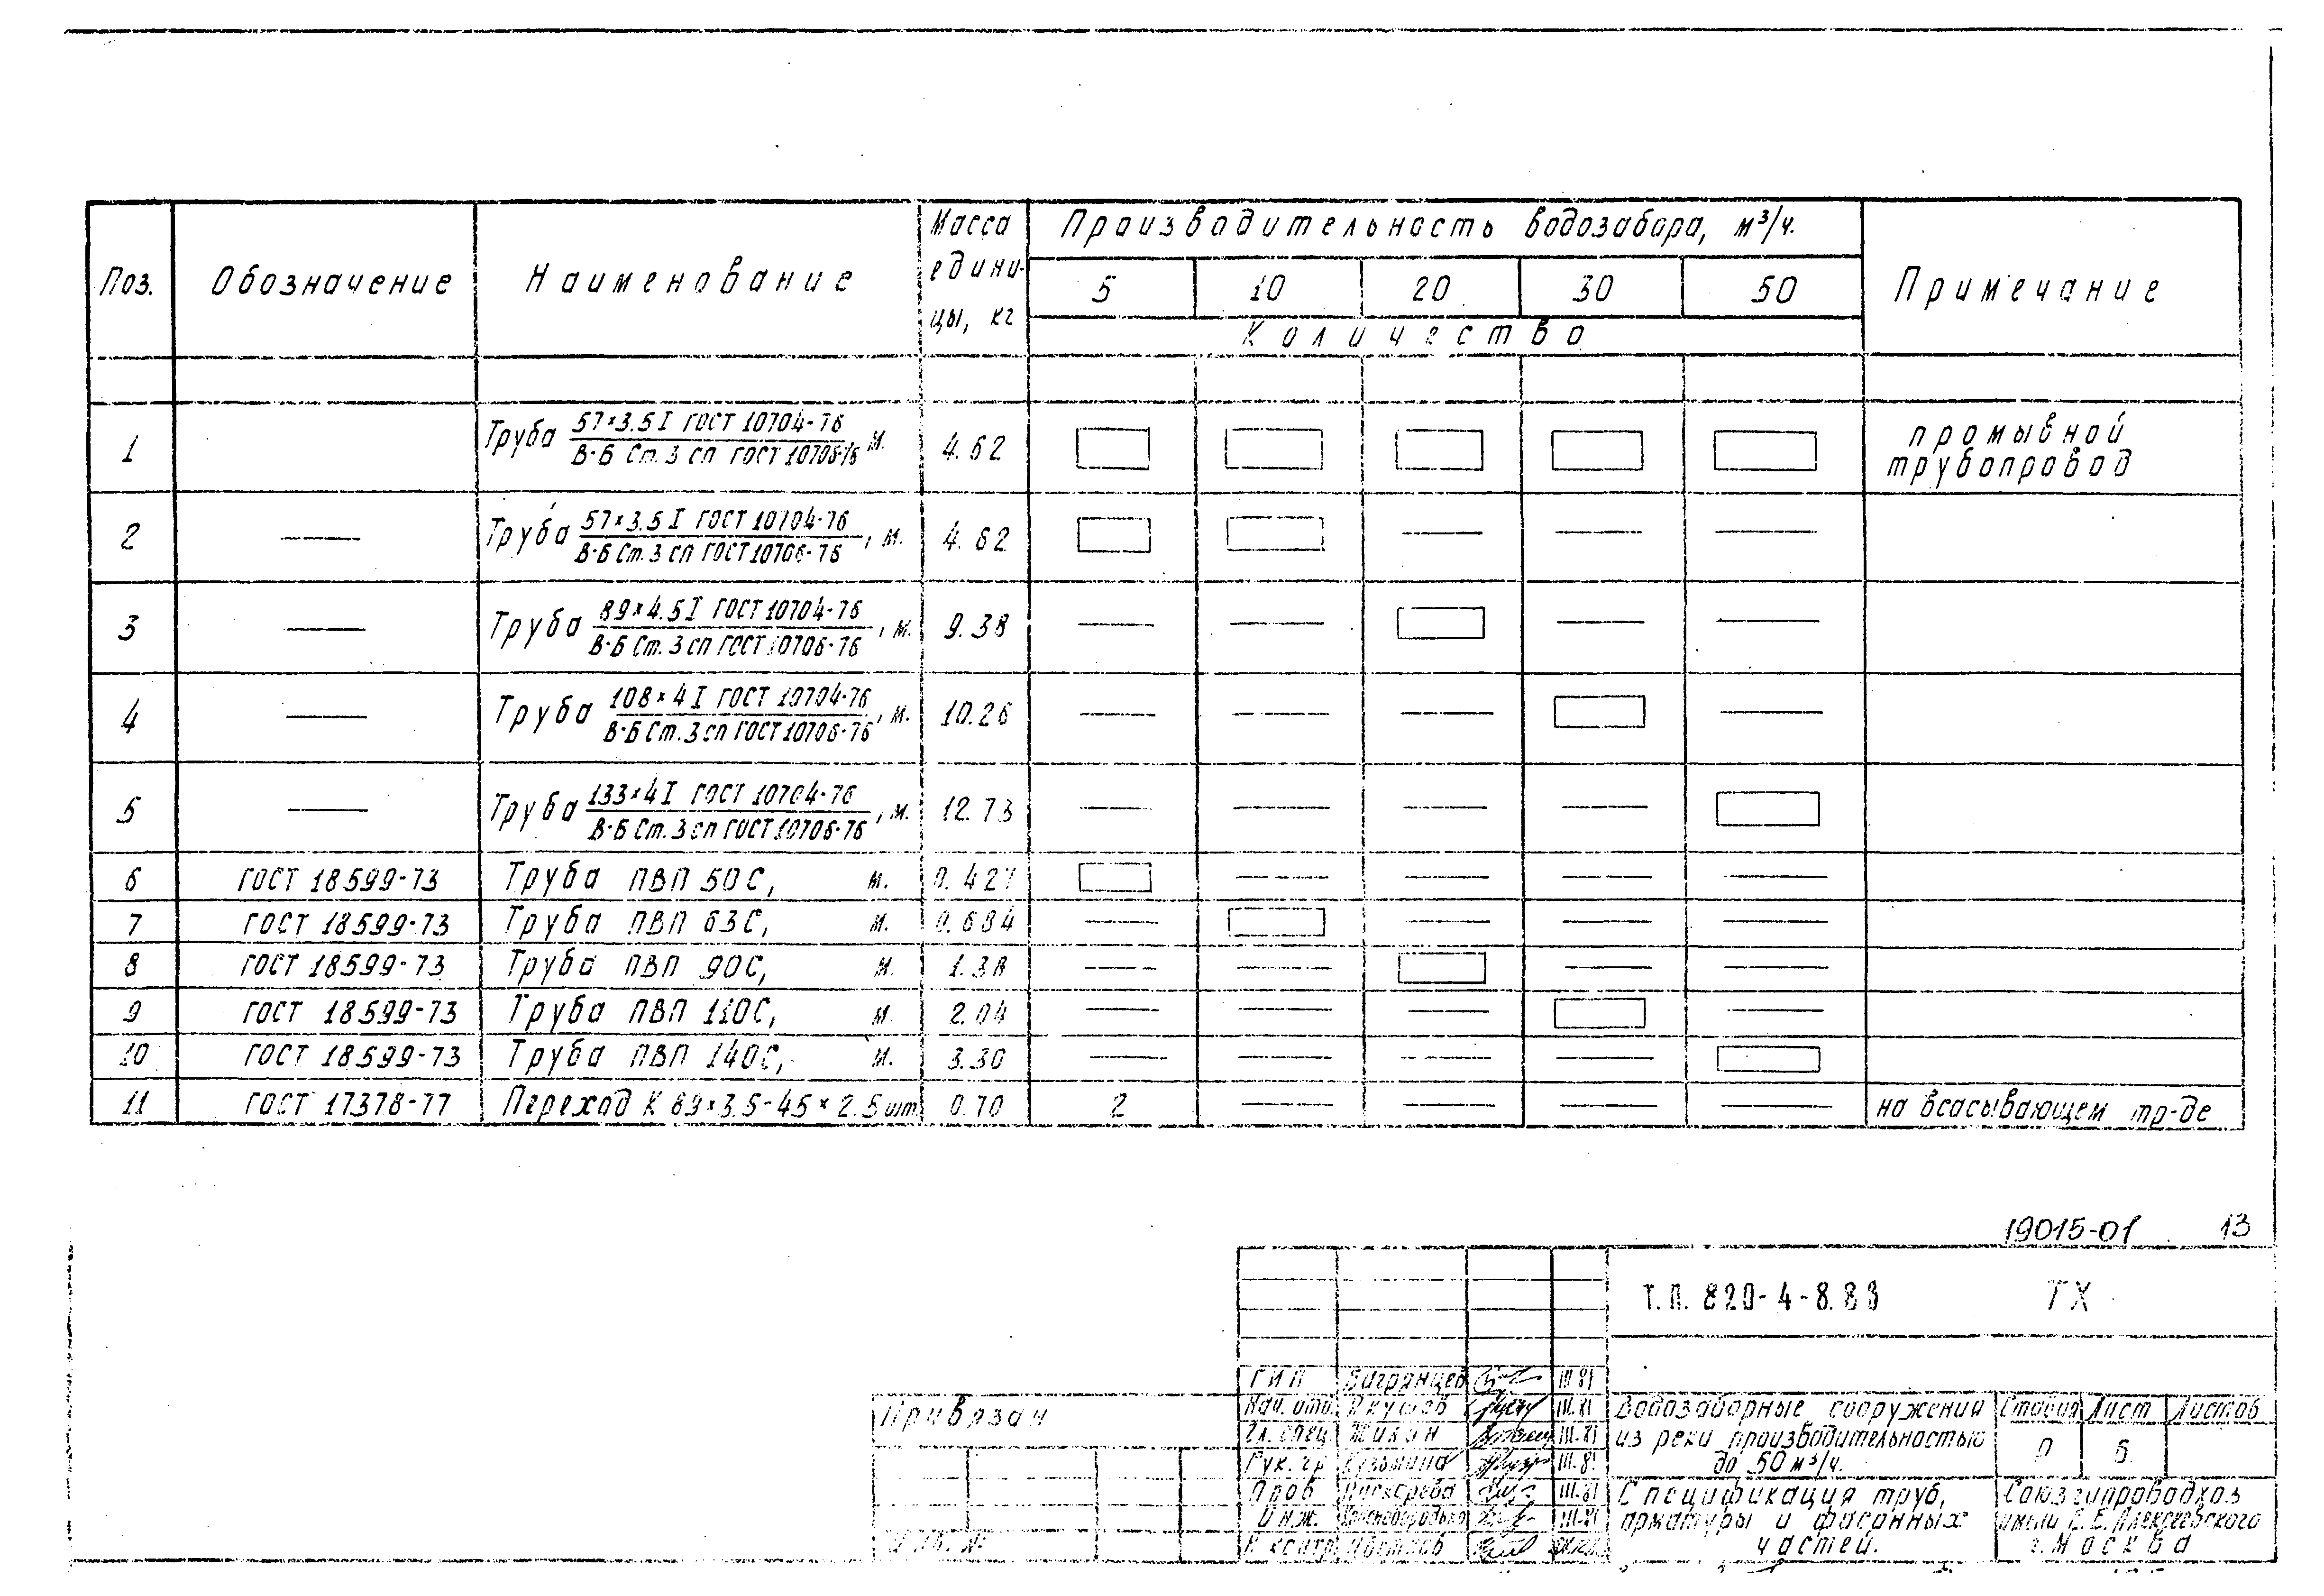 Поз. Обозначение Наименование Масса едини-цы, кг Производительность водозабора, м³/ч. Примечание
5 10 20 30 50
Количество
1 Труба 57×3.5 I ГОСТ 10704-76 / В-Б Ст.3 сп ГОСТ 10706-76 м. 4.62 промывной трубопровод
2 — Труба 57×3.5 I ГОСТ 10704-76 / В-Б Ст.3 сп ГОСТ 10706-76, м. 4.62 — — —
3 — Труба 89×4.5 I ГОСТ 10704-76 / В-Б Ст.3 сп ГОСТ 10706-76, м. 9.38 — — — —
4 — Труба 108×4 I ГОСТ 10704-76 / В-Б Ст.3 сп ГОСТ 10706-76, м. 10.26 — — — —
5 — Труба 133×4 I ГОСТ 10704-76 / В-Б Ст.3 сп ГОСТ 10706-76, м. 12.73 — — — —
6 ГОСТ 18599-73 Труба ПВП 50С, м. 0.427 — — — —
7 ГОСТ 18599-73 Труба ПВП 63С, м. 0.684 — — — —
8 ГОСТ 18599-73 Труба ПВП 90С, м. 1.38 — — — —
9 ГОСТ 18599-73 Труба ПВП 110С, м. 2.04 — — — —
10 ГОСТ 18599-73 Труба ПВП 140С, м. 3.30 — — — —
11 ГОСТ 17378-77 Переход К 89×3.5-45×2.5 шт 0.70 2 — — — — на всасывающем тр-де
19015-01 13
Т.П. 820-4-8.83 ТХ
Привязан
ГИП Багрянцев III.81
Нач. отд. Якушов III.81
Гл. спец. Жилин III.81
Рук. гр. Кузьмина III.81
Пров III.81
Инж. III.81
Н контр
Водозаборные сооружения
из реки производительностью
до 50 м³/ч.
Стадия Лист Листов
Р 6
Спецификация труб,
арматуры и фасонных
частей.
Союзгипроводхоз
имени Е.Е. Алексеевского
г. Москва